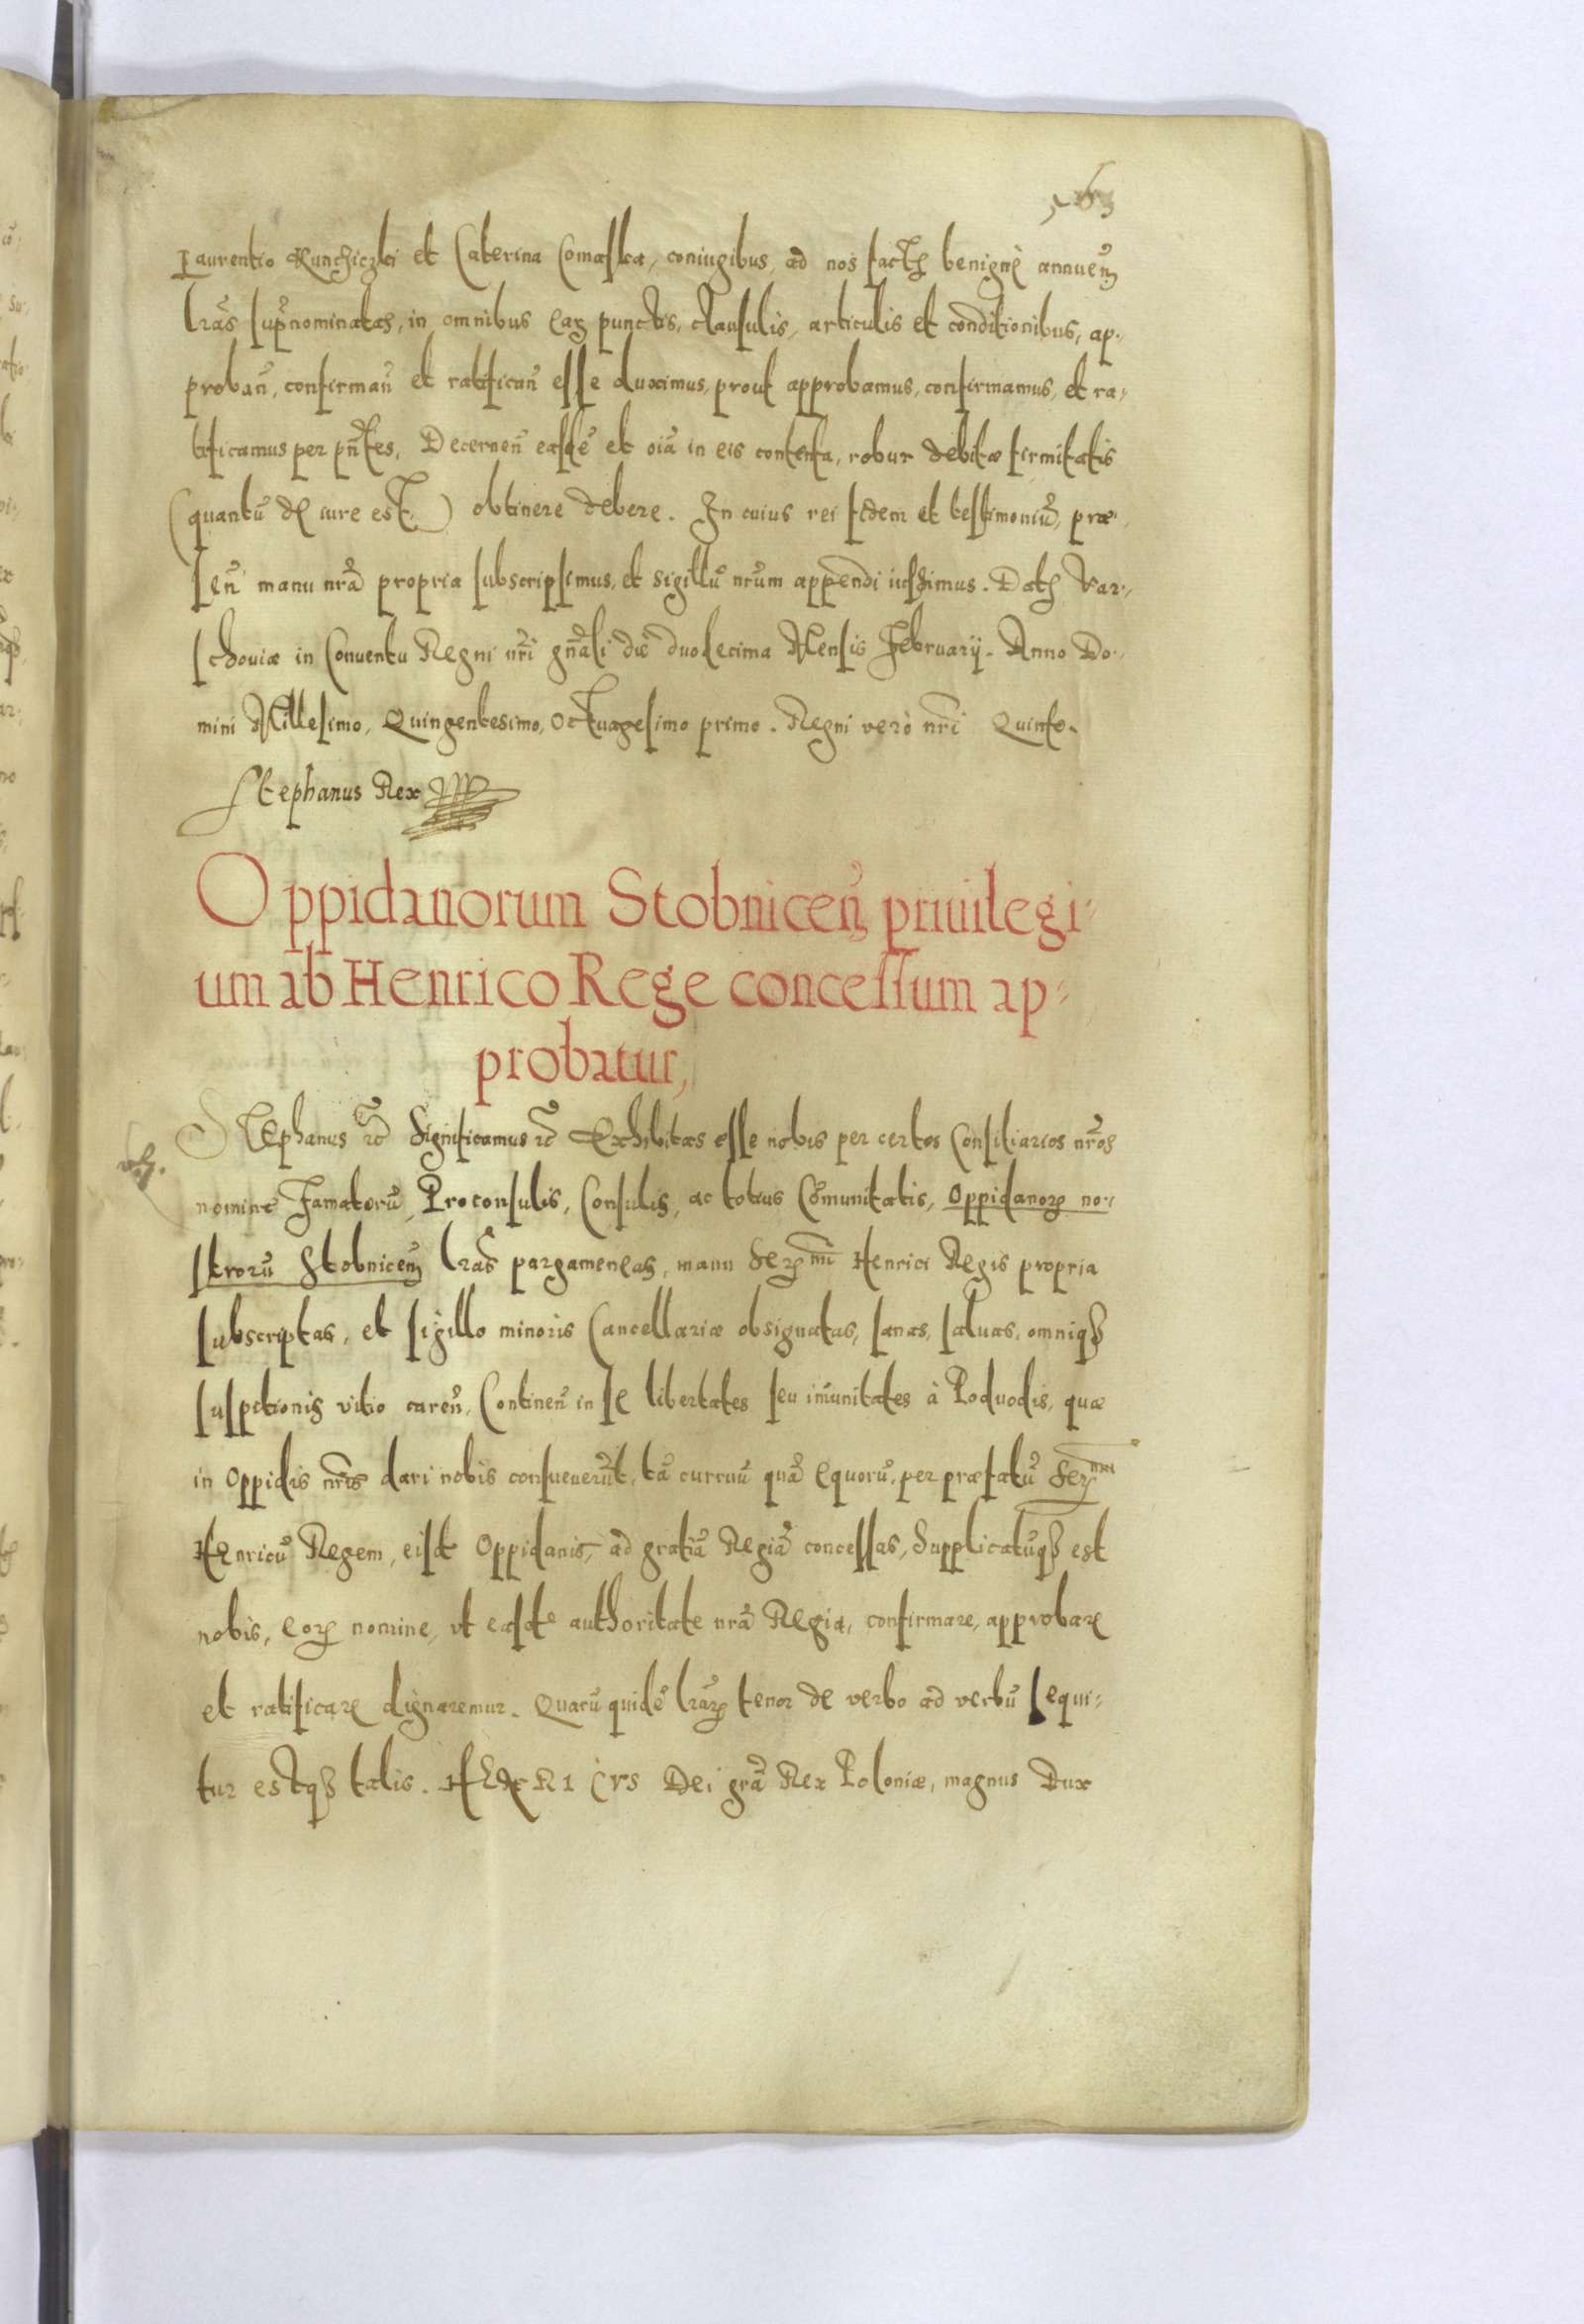 Laurentio Runchiczki et Caterina Comaſka, coniugibus, ad nos fact: benignè annuen̄
lr̄as ſupr̄nominatas, in omnibus earꝫ punctis, clauſulis, articulis et conditionibus, ap-
proban̄, confirman̄ et ratifican̄ eſſe duximus, prout approbamus, confirmamus, et ra-
tificamus per pn̄tes, Decernen̄ eaſdē et oīa in eis contenta, robur debitæ firmitatis
(quantū de iure est) obtinere debere. In cuius rei fidem et teſtimoniū, præ-
ſen̄ manu nr̄a propria ſubscripſimus, et sigillū nr̄um appendi iuſſimus. Dat: Var-
ſchouiæ in Conuentu Regni nr̄i gn̄ali die duodecima Menſis February. Anno Do-
mini Milleſimo, Quingentesimo, Octuageſimo primo. Regni verò nr̄i Quinto.
Stephanus Rex
Oppidanorum Stobnicen̄ priuilegi-
um ab Henrico Rege conceſſum ap-
probatur,
Stephanus ꝛc̄ Significamus ꝛc̄ Exhibitas eſſe nobis per certos Conſiliarios nr̄os
nomine Famatorū, Proconſulis, Conſulis, ac totius Cōmunitatis, Oppidanorꝫ no-
ſtrorū Stobnicen̄ lr̄as pargameneas, manu Serꝫmi Henrici Regis propria
ſubscriptas, et ſigillo minoris Cancellariæ obsignatas, ſanas, ſaluas, omniqꝫ
ſuſpitionis vitio caren̄, Continen̄ in ſe libertates ſeu im̄unitates à Poduodis, quæ
in Oppidis nr̄is dari nobis conſueuerūt, tā curruū quā equorū, per præfatū Serꝫmū
Henricū Regem, eiſdē Oppidanis, ad gratiā Regiā conceſſas, Supplicatūqꝫ est
nobis, eorꝫ nomine, vt eaſdē authoritate nr̄a Regia, confirmare, approbare
et ratificare dignaremur. Quarū quidē lr̄arꝫ tenor de verbo ad verbū ſequi-
tur estqꝫ talis. HENRICVS Dei gr̄a Rex Poloniæ, magnus Dux